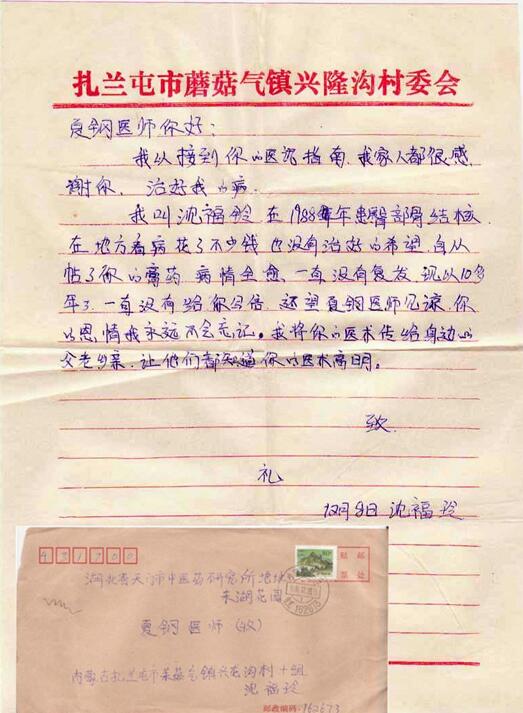 扎兰屯市蘑菇气镇兴隆沟村委会
夏钢医师你好：
我以接到你的医沉指南，我家人都很感
谢你，治好我的病。
我叫沈福铃 在1988年患臀部骨结核
在地方看病花了不少钱 也没有治好的希望，自从
帖了你的膏药 病情全愈，一直没有复发，现以10多
年了，一直没有给你写信，还望夏钢医师见谅，你
的恩情我永远不会忘记。我将你的医术传给身边的
父老乡亲，让他们都知道你的医术高明。
致
礼
12月8日 沈福玲
431700
贴邮
票处
湖北省天门市中医药研究所
东湖花园
夏钢医师（收）
内蒙古扎兰屯市蘑菇气镇兴屯沟村十组
沈福玲
邮政编码：162673